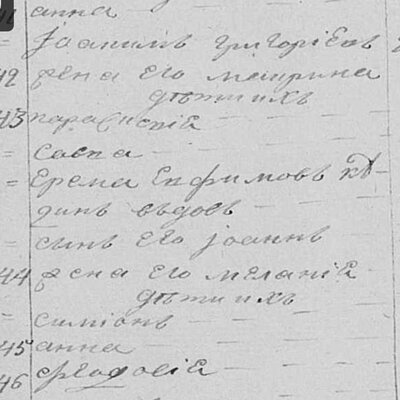 анна
= Іоакимъ григоріевъ
42 жена его марина
дѣти ихъ
43 параскивія
= Савва
= Ерема Евфимовъ
динъ вдовъ
= сынъ его Іоаннъ
44 жена его меланія
дѣти ихъ
= симіонъ
45 анна
46 феодосія